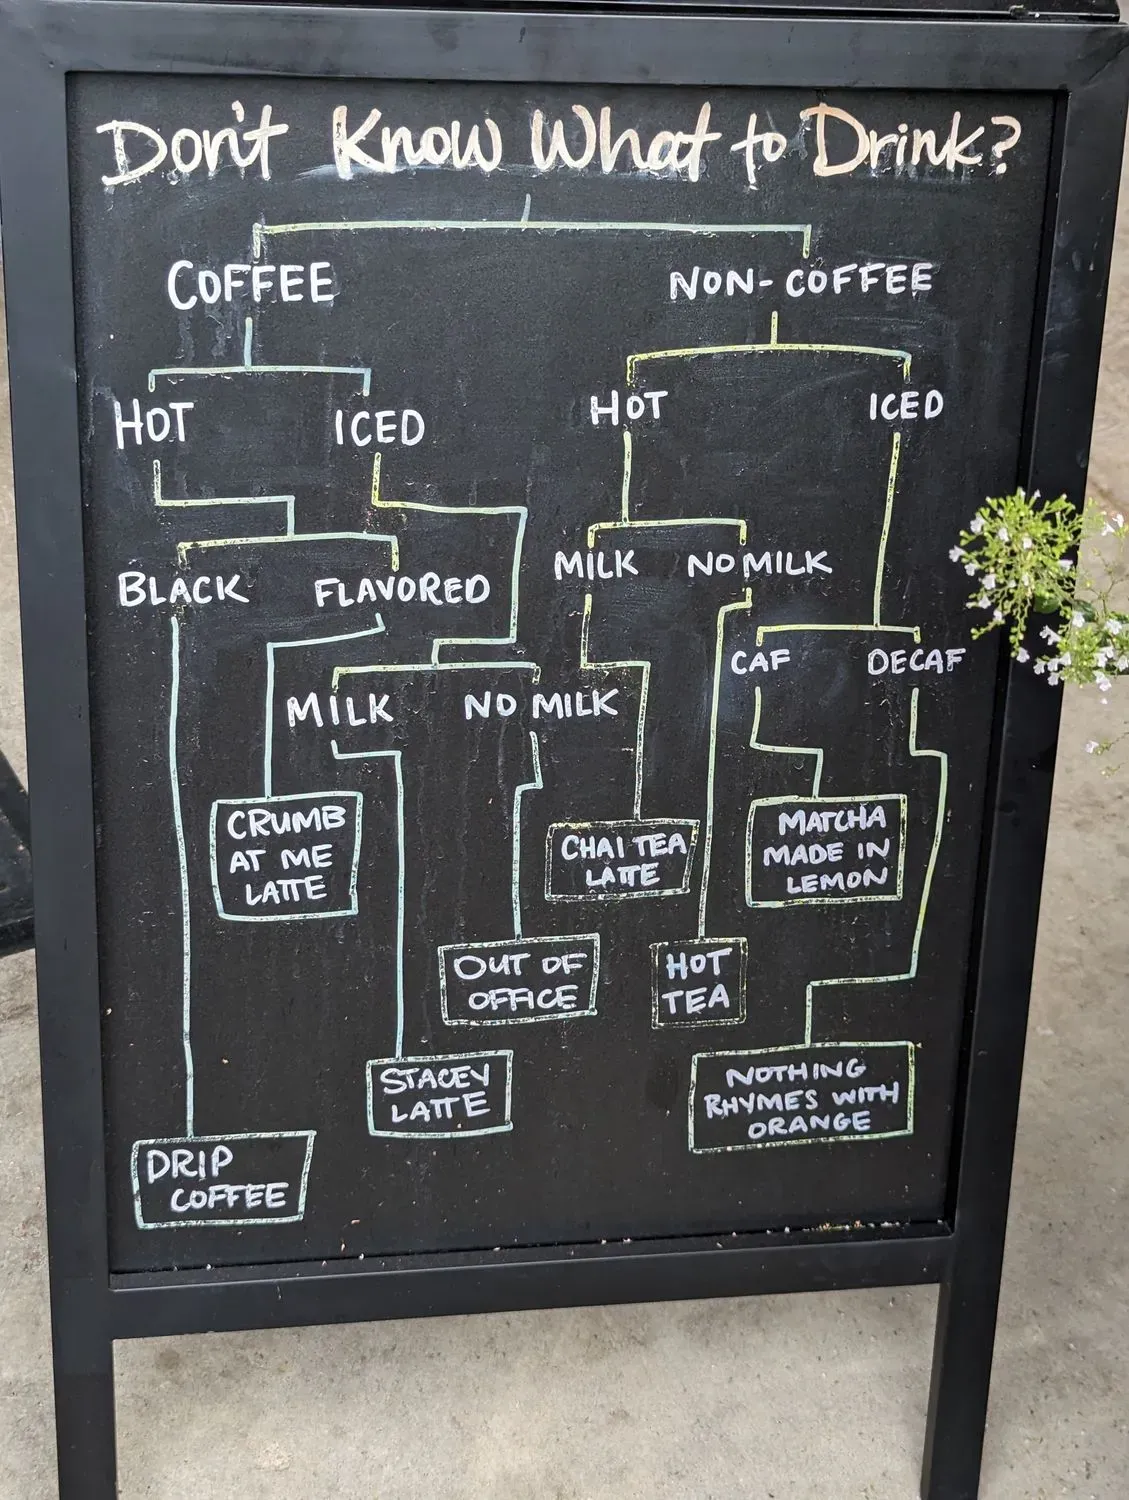 Don't Know What to Drink?
COFFEE
NON-COFFEE
HOT
ICED
HOT
ICED
BLACK
FLAVORED
MILK
NO MILK
MILK
NO MILK
CAF
DECAF
CRUMB
AT ME
LATTE
CHAI TEA
LATTE
MATCHA
MADE IN
LEMON
OUT OF
OFFICE
HOT
TEA
STACEY
LATTE
NOTHING
RHYMES WITH
ORANGE
DRIP
COFFEE